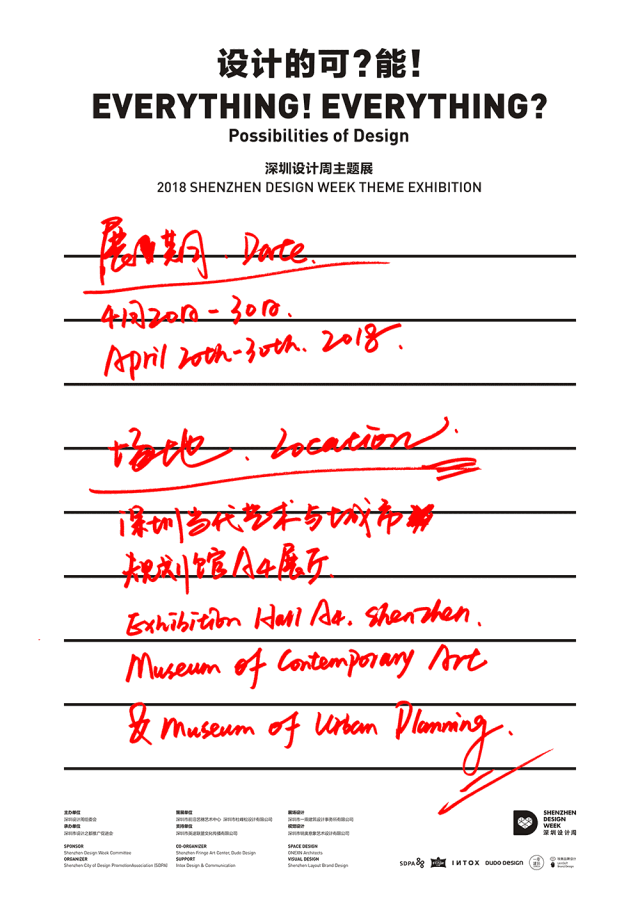 设计的可?能!
EVERYTHING! EVERYTHING?
Possibilities of Design
深圳设计周主题展
2018 SHENZHEN DESIGN WEEK THEME EXHIBITION
展期. Date.
4月20日-30日.
April 20th-30th. 2018.
场地. Location.
深圳当代艺术与城市
规划馆A4展厅
Exhibition Hall A4. Shenzhen.
Museum of Contemporary Art
& Museum of Urban Planning.
主办单位
深圳设计周组委会
承办单位
深圳市设计之都推广促进会
SPONSOR
Shenzhen Design Week Committee
ORGANIZER
Shenzhen City of Design PromotionAssociation (SDPA)
策展单位
支持单位
CO-ORGANIZER
Shenzhen Fringe Art Center, Dudo Design
SUPPORT
Intox Design & Communication
展场设计
视觉设计
SPACE DESIGN
ONEXN Architects
VISUAL DESIGN
Shenzhen Layout Brand Design
SHENZHEN
DESIGN
WEEK
深圳设计周
SDPA
INTOX
DUDO DESIGN